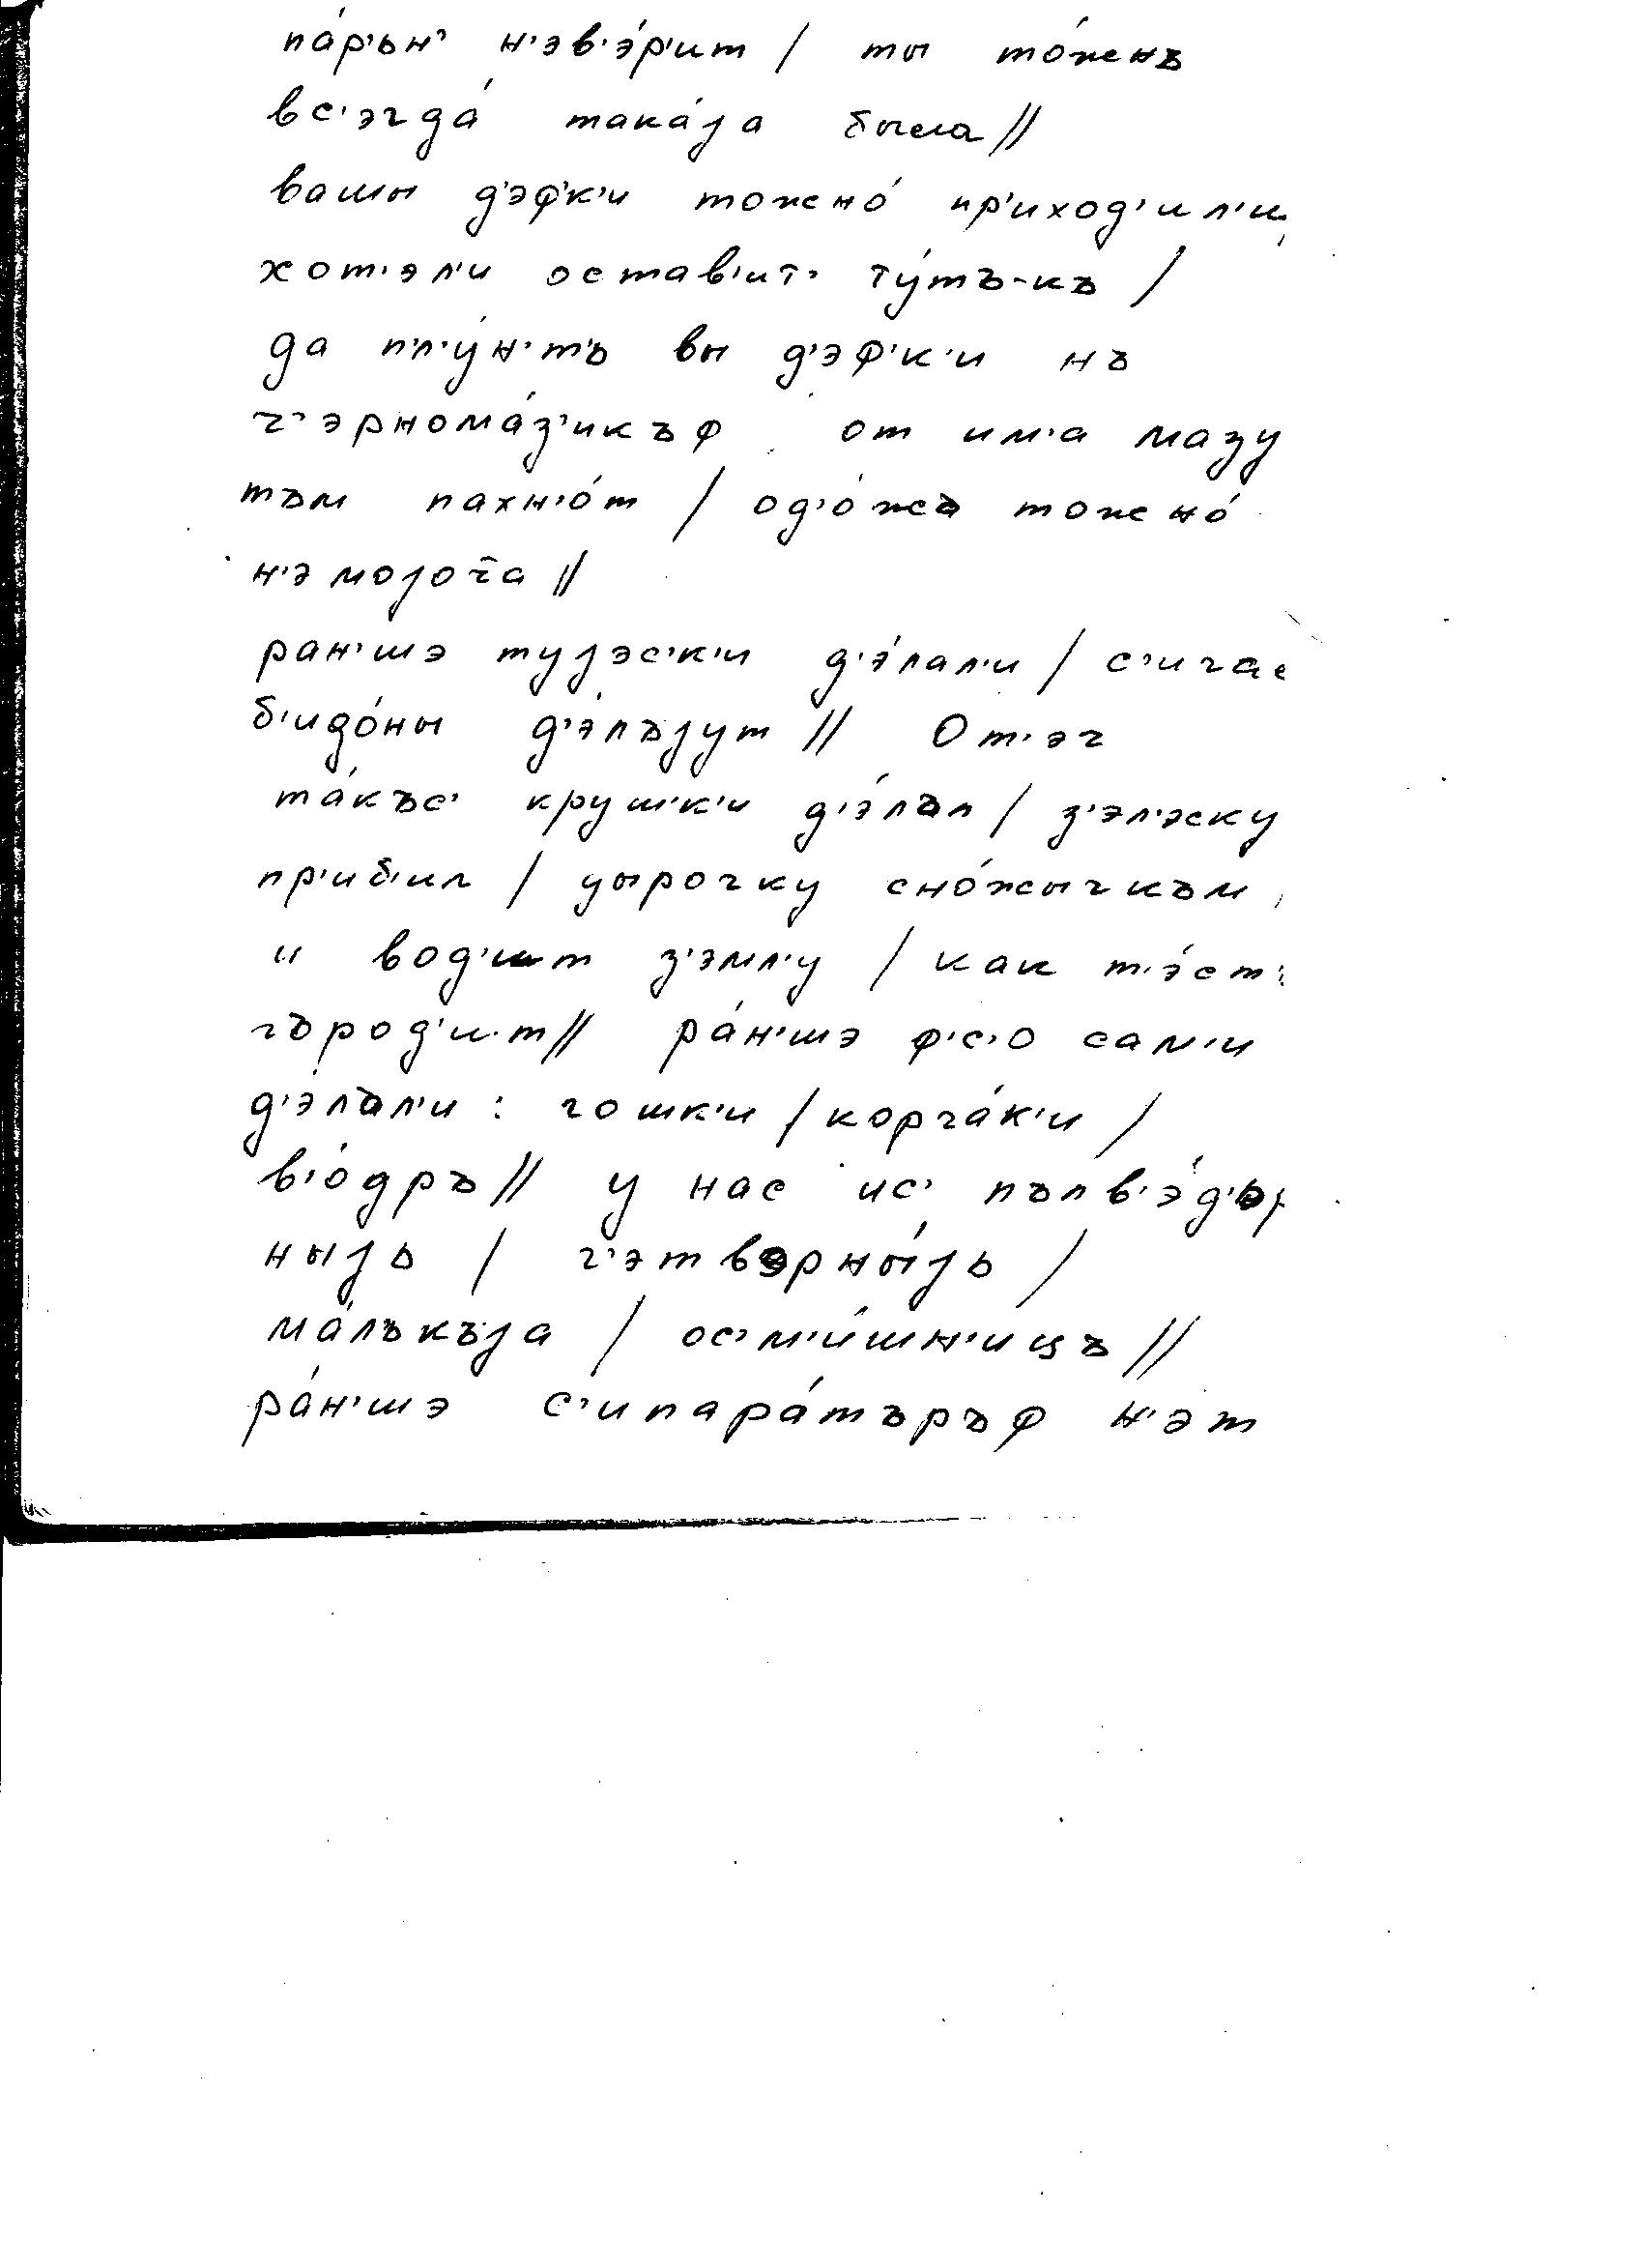 па́р'ьн' н'эв'э́р'ит / ты то́женъ
вс'эгда́ така́jа была //
вашы д'эф'к'и тожено́ пр'иход'ил'и,
хот'эл'и остав'ит' ту́тъ-къ /
да пл'у́н'т'ь вы д'эф'к'и нъ
ч'эрнома́з'икъф от им'а мазу
тъм пахн'о́т / од'о́жъ тожено́
н'э моjоца //
ран'шэ туjэс'к'и д'э́лал'и / с'ичас
б'идо́ны д'э́лъjут // От'эч
та́къс' круш'к'и д'э́лъл / з'эл'эску
пр'иб'ил / дырочку сно́жычкъм,
и вод'ит з'эмл'у / как т'э́ст'
гърод'ит // ра́н'шэ ф'с'о сам'и
д'э́лъл'и : гошк'и / корча́к'и /
в'о́дръ // у нас ис' пълв'э́д'ьр
ныjь / ч'этвэрны́jь /
ма́лъкъjа / ос'м'и́шн'ицъ //
ра́н'шэ с'ипара́търъф н'эт